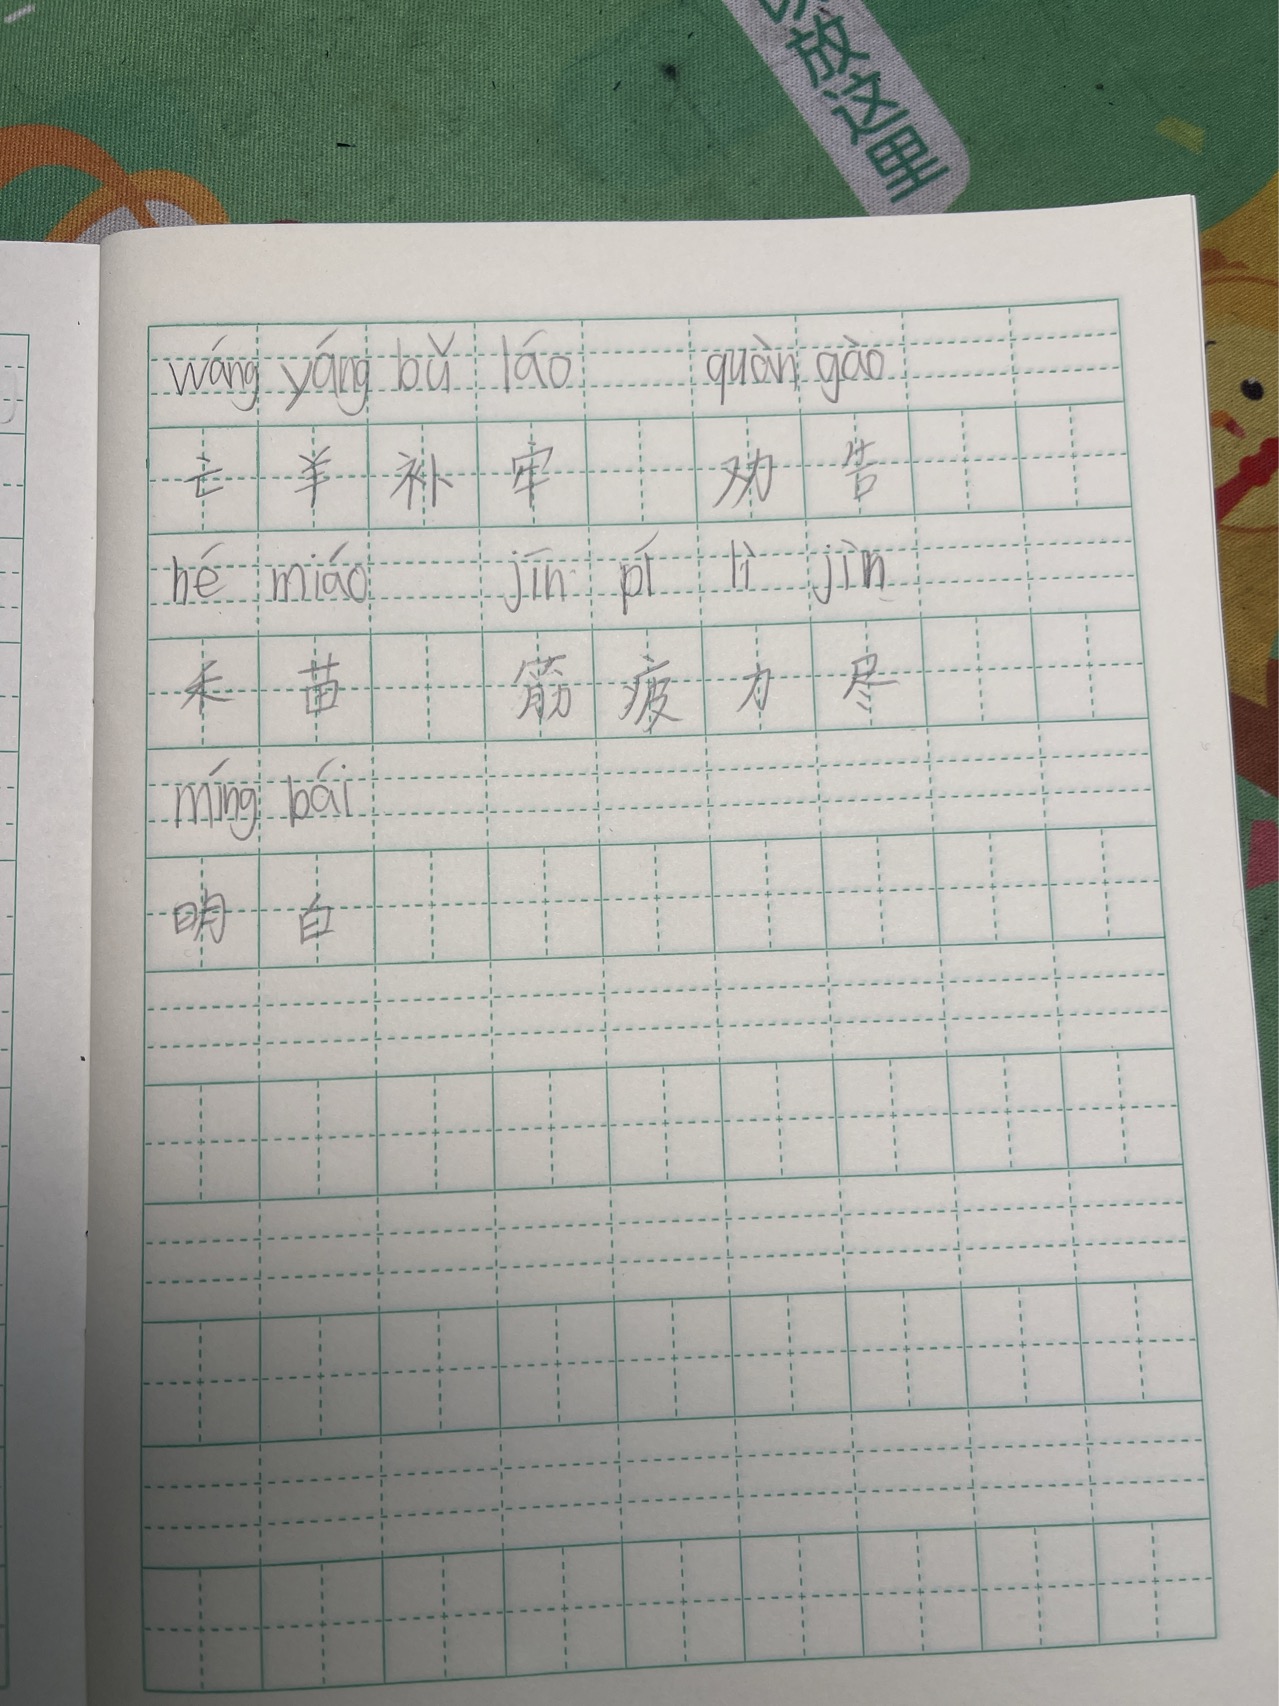 放这里
wáng yáng bǔ láo quàn gào
亡羊补牢 劝告
hé miáo jīn pí lì jìn
禾苗 筋疲力尽
míng bái
明白